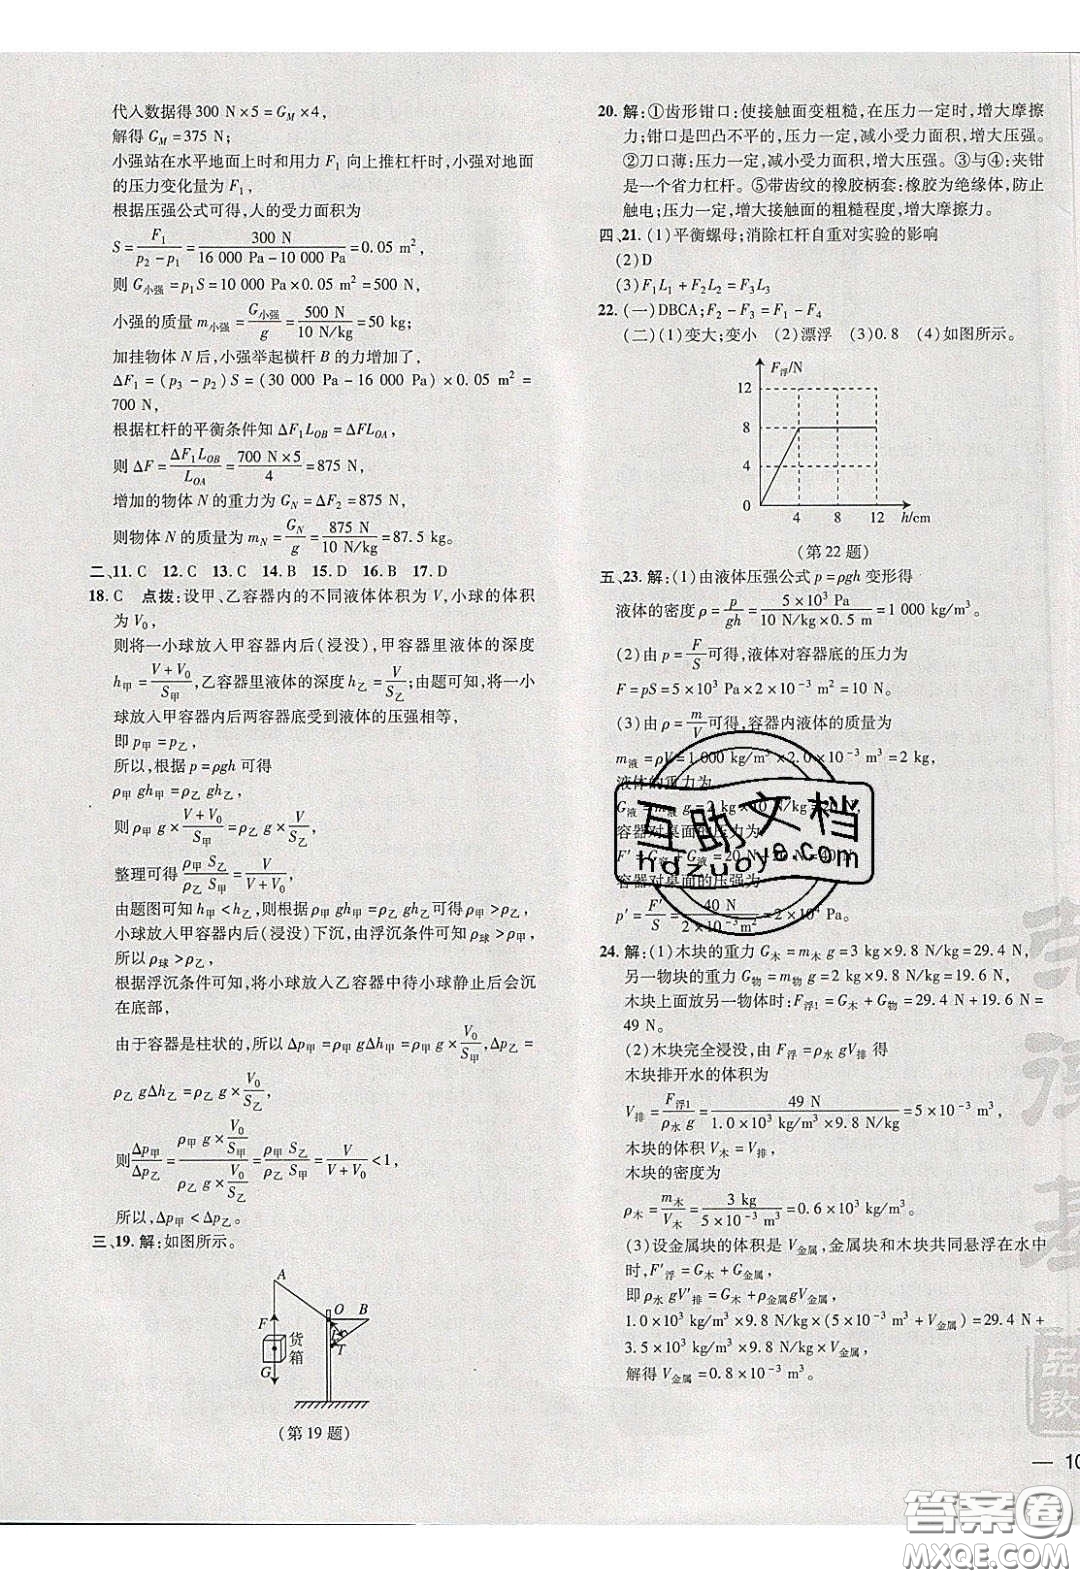 代入数据得300 N×5=G_M×4,
解得 G_M=375 N;
小强站在水平地面上时和用力 F₁ 向上推杠杆时,小强对地面
的压力变化量为 F₁,
根据压强公式可得,人的受力面积为
S=F₁/(p₂-p₁)=300 N/(16 000 Pa-10 000 Pa)=0.05 m²,
则 G小强=p₁S=10 000 Pa×0.05 m²=500 N,
小强的质量 m小强=G小强/g=500 N/(10 N/kg)=50 kg;
加挂物体 N 后,小强举起横杆 B 的力增加了,
ΔF₁=(p₃-p₂)S=(30 000 Pa-16 000 Pa)×0.05 m²=
700 N,
根据杠杆的平衡条件知 ΔF₁L_OB=ΔFL_OA,
则 ΔF=ΔF₁L_OB/L_OA=700 N×5/4=875 N,
增加的物体 N 的重力为 G_N=ΔF₂=875 N,
则物体 N 的质量为 m_N=G_N/g=875 N/(10 N/kg)=87.5 kg。
二、11. C 12. C 13. C 14. B 15. D 16. B 17. D
18. C 点拨:设甲、乙容器内的不同液体体积为 V,小球的体积
为 V₀,
则将一小球放入甲容器内后(浸没),甲容器里液体的深度
h甲=(V+V₀)/S甲,乙容器里液体的深度 h乙=V/S乙;由题可知,将一小
球放入甲容器内后两容器底受到液体的压强相等,
即 p甲=p乙,
所以,根据 p=ρgh 可得
ρ甲 gh甲=ρ乙 gh乙,
则 ρ甲 g×(V+V₀)/S甲=ρ乙 g×V/S乙,
整理可得 ρ甲 S乙/(ρ乙 S甲)=V/(V+V₀),
由题图可知 h甲<h乙,则根据 ρ甲 gh甲=ρ乙 gh乙可得 ρ甲>ρ乙,
小球放入甲容器内后(浸没)下沉,由浮沉条件可知 ρ球>ρ甲,
所以 ρ球>ρ乙,
根据浮沉条件可知,将小球放入乙容器中待小球静止后会沉
在底部,
由于容器是柱状的,所以 Δp甲=ρ甲 gΔh甲=ρ甲 g×V₀/S甲,Δp乙=
ρ乙 gΔh乙=ρ乙 g×V₀/S乙,
则 Δp甲/Δp乙=(ρ甲 g×V₀/S甲)/(ρ乙 g×V₀/S乙)=ρ甲 S乙/(ρ乙 S甲)=V/(V+V₀)<1,
所以,Δp甲<Δp乙。
三、19. 解:如图所示。
A
O B
F
货
箱
T
G
(第 19 题)
20. 解:①齿形钳口:使接触面变粗糙,在压力一定时,增大摩擦
力;钳口是凹凸不平的,压力一定,减小受力面积,增大压强。
②刀口薄;压力一定,减小受力面积,增大压强。③与④:夹钳
是一个省力杠杆。⑤带齿纹的橡胶柄套:橡胶为绝缘体,防止
触电;压力一定,增大接触面的粗糙程度,增大摩擦力。
四、21. (1)平衡螺母;消除杠杆自重对实验的影响
(2)D
(3)F₁L₁+F₂L₂=F₃L₃
22. (一)DBCA;F₂-F₃=F₁-F₄
(二)(1)变大;变小 (2)漂浮 (3)0.8 (4)如图所示。
F浮/N
12
8
4
0
4 8 12 h/cm
(第 22 题)
五、23. 解:(1)由液体压强公式 p=ρgh 变形得
液体的密度 ρ=p/(gh)=5×10³ Pa/(10 N/kg×0.5 m)=1 000 kg/m³。
(2)由 p=F/S 可得,液体对容器底的压力为
F=pS=5×10³ Pa×2×10⁻³ m²=10 N。
(3)由 ρ=m/V 可得,容器内液体的质量为
m液=ρV=1 000 kg/m³×2.0×10⁻³ m³=2 kg,
液体的重力为
G液=m液 g=2 kg×10 N/kg=20 N,
容器对桌面的压力为
F′=G容+G液=20 N+20 N=40 N,
容器对桌面的压强为
p′=F′/S=40 N/(2×10⁻³ m²)=2×10⁴ Pa。
24. 解:(1)木块的重力 G木=m木 g=3 kg×9.8 N/kg=29.4 N,
另一物块的重力 G物=m物 g=2 kg×9.8 N/kg=19.6 N,
木块上面放另一物体时:F浮1=G木+G物=29.4 N+19.6 N=
49 N。
(2)木块完全浸没,由 F浮=ρ水 gV排 得
木块排开水的体积为
V排=F浮1/(ρ水 g)=49 N/(1.0×10³ kg/m³×9.8 N/kg)=5×10⁻³ m³,
木块的体积 V木=V排,
木块的密度为
ρ木=m木/V木=3 kg/(5×10⁻³ m³)=0.6×10³ kg/m³。
(3)设金属块的体积是 V金属,金属块和木块共同悬浮在水中
时,F′浮=G木+G金属,
即 ρ水 gV′排=G木+ρ金属gV金属,
1.0×10³ kg/m³×9.8 N/kg×(5×10⁻³ m³+V金属)=29.4 N+
3.5×10³ kg/m³×9.8 N/kg×V金属,
解得 V金属=0.8×10⁻³ m³。
互助文档
hdzuoye.com
品
教
— 10
答案圈
MXQE.COM